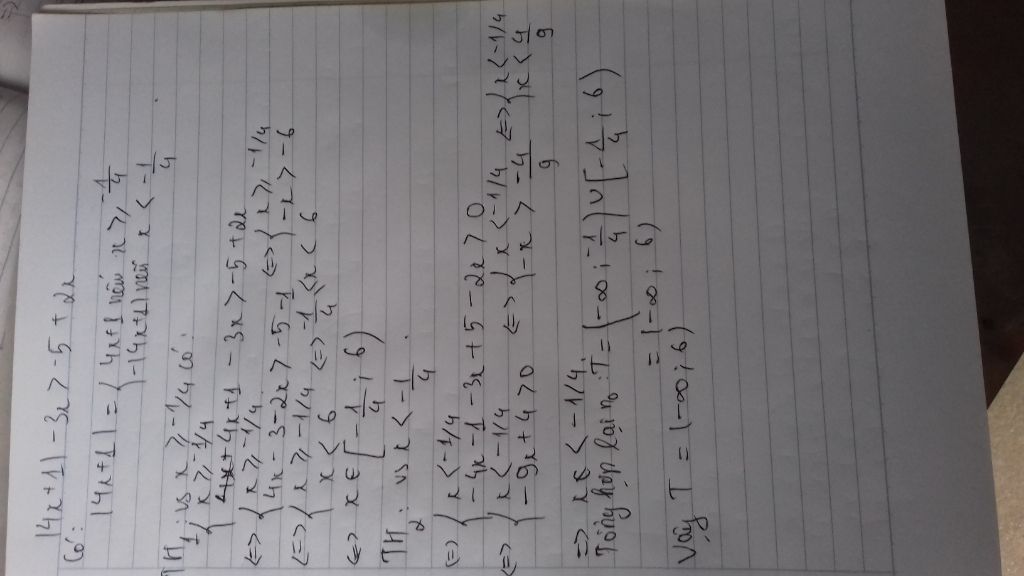 |4x+1| - 3x > -5 + 2x
Có:
|4x+1| = { 4x+1 nếu x ⩾ -1/4
-(4x+1) nếu x < -1/4 .
TH1: vs x ⩾ -1/4 có:
{ x ⩾ -1/4
4x+1 - 3x > -5 + 2x
<=> { x ⩾ -1/4
4x - 3 - 2x > -5 -1 <=> { x ⩾ -1/4
-x > -6
<=> { x ⩾ -1/4
x < 6 <=> -1/4 ≤ x < 6
<=> x ∈ [ -1/4 ; 6 )
TH2: vs x < -1/4 .
<=> { x < -1/4
-4x - 1 - 3x + 5 - 2x > 0
<=> { x < -1/4
-9x + 4 > 0 <=> { x < -1/4
-x > -4/9 <=> { x < -1/4
x < 4/9
=> x < -1/4
Tổng hợp lại: T = (-∞ ; -1/4) ∪ [ -1/4 ; 6 )
= (-∞ ; 6)
Vậy T = (-∞ ; 6)